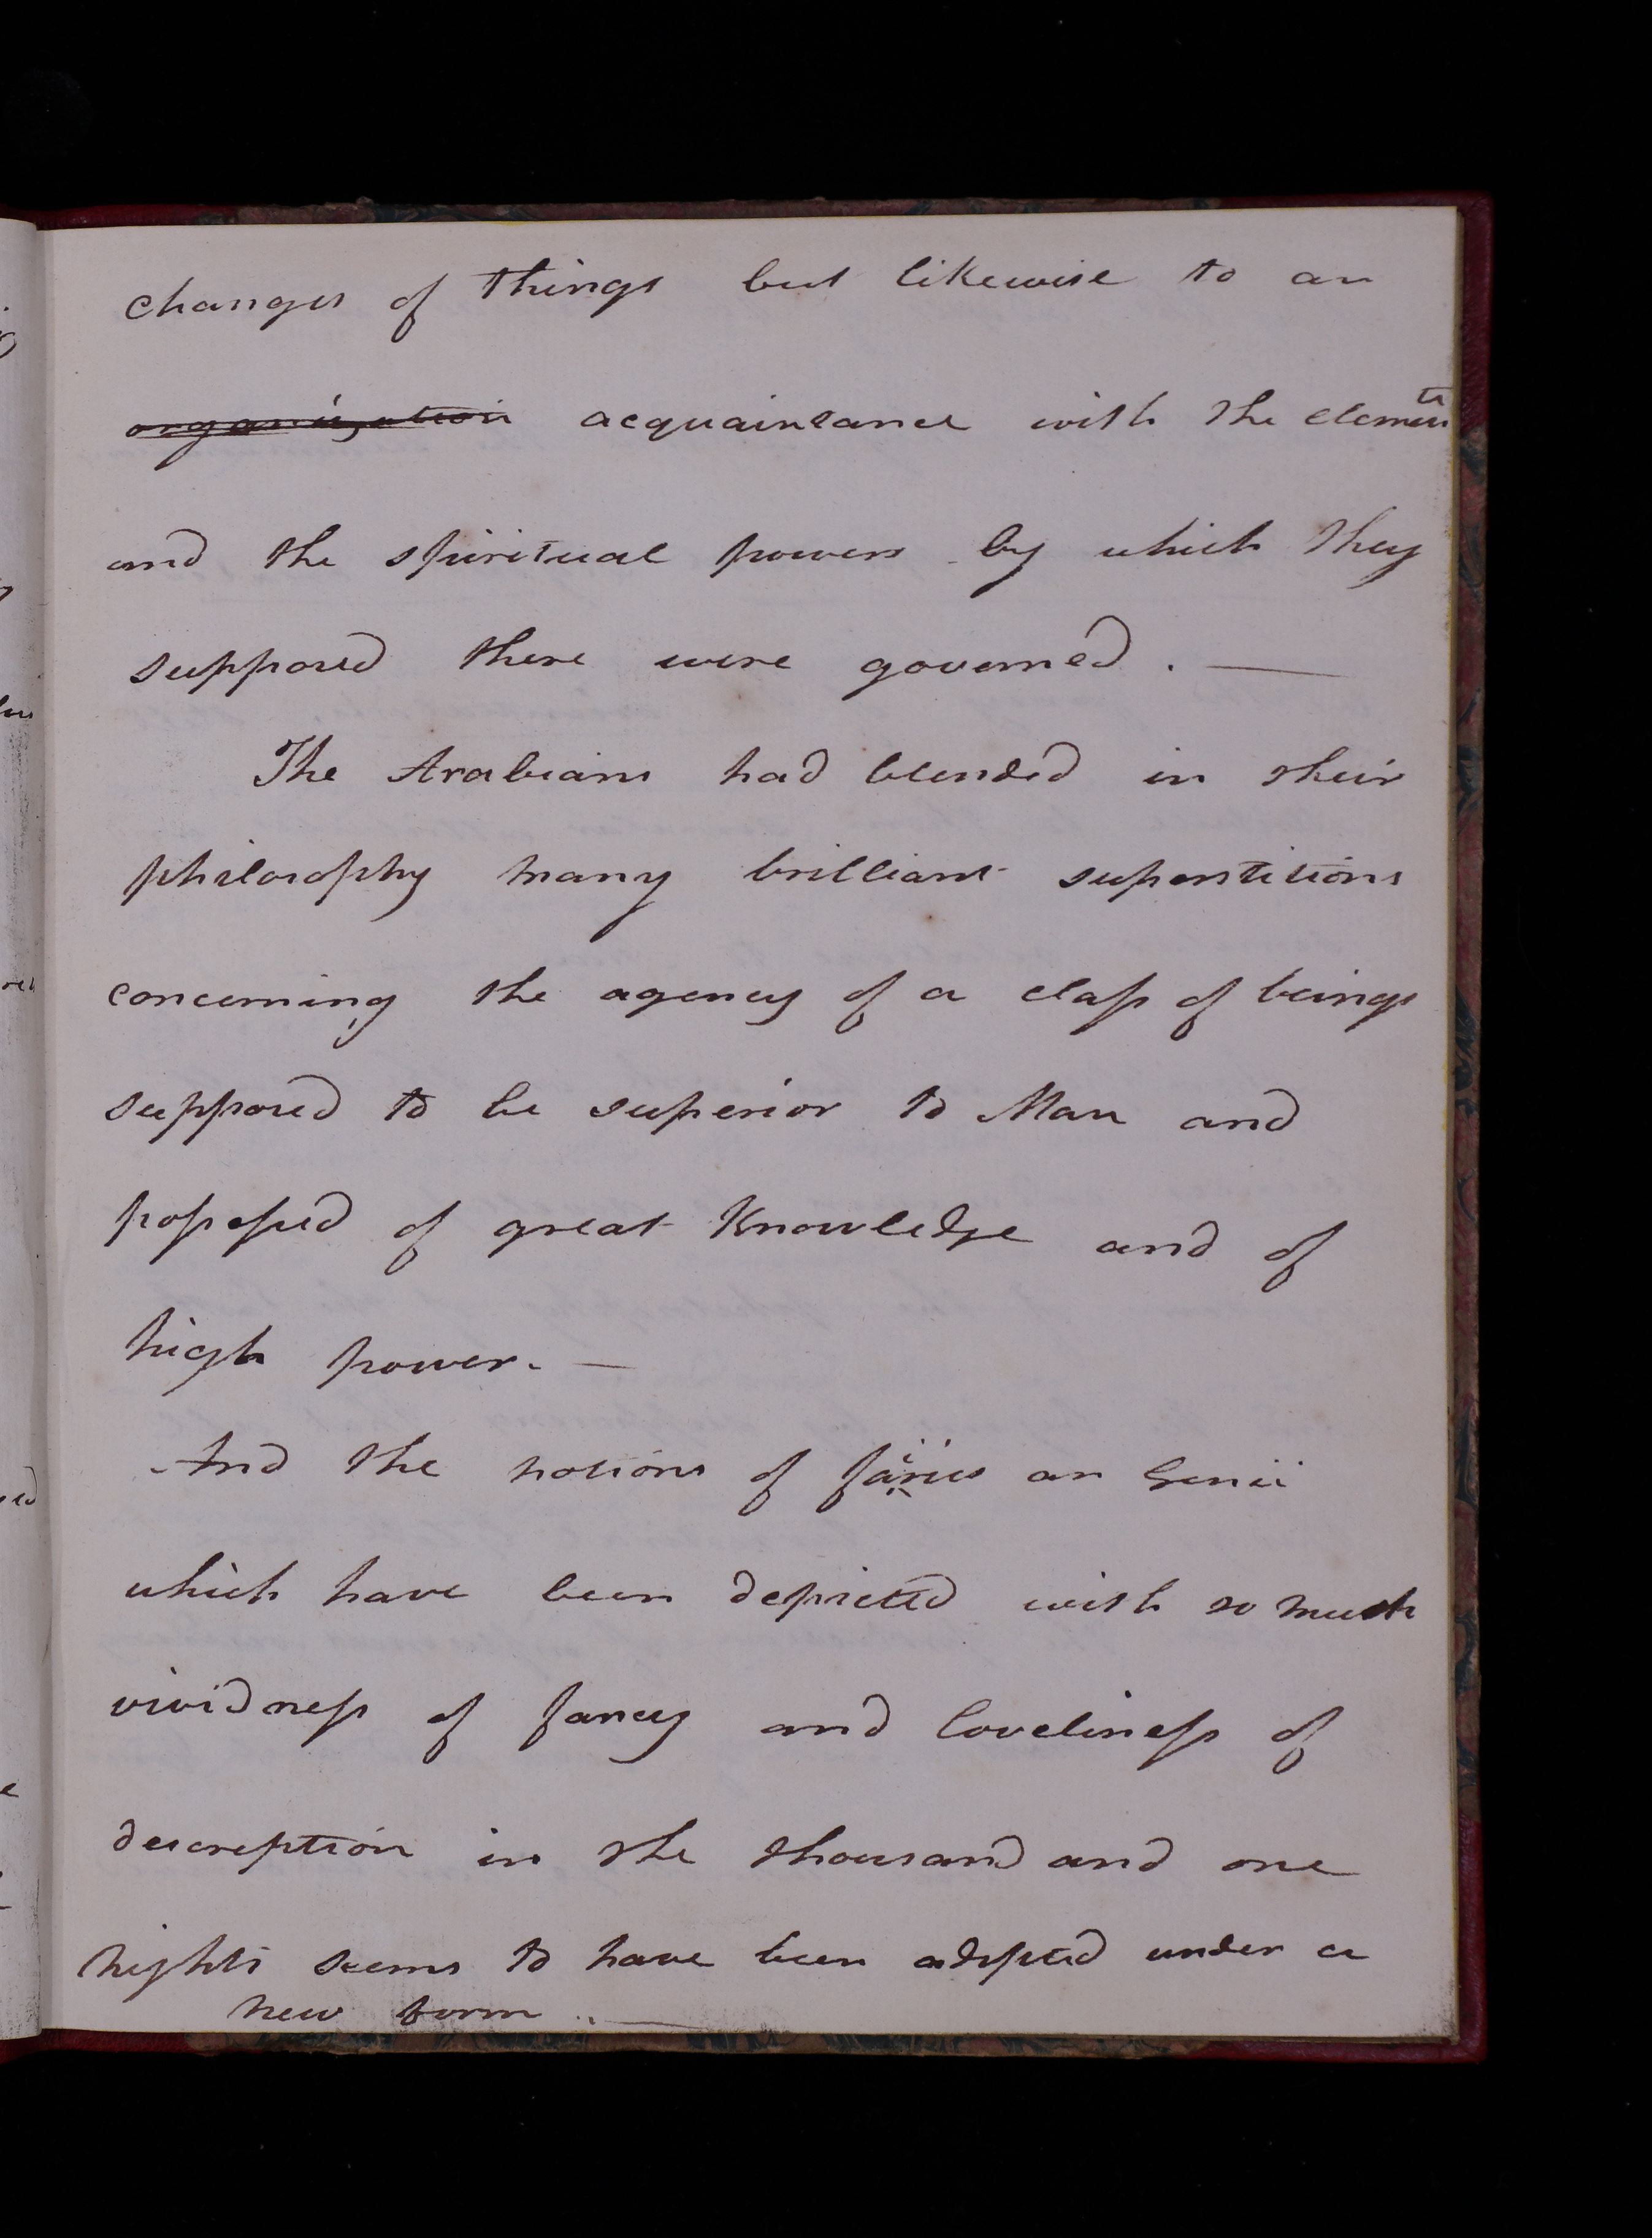 changes of things but likewise to an
organization acquaintance with the elements
and the spiritual powers by which they
supposed there were governed. —
The Arabians had blended in their
philosophy many brilliant superstitions
concerning the agency of a class of beings
supposed to be superior to Man and
possessed of great Knowledge and of
high power. —
And the notions of fairies an Genii
which have been depicted with so much
vividness of fancy and loveliness of
description in the thousand and one
nights seems to have been adopted under a
new form. —